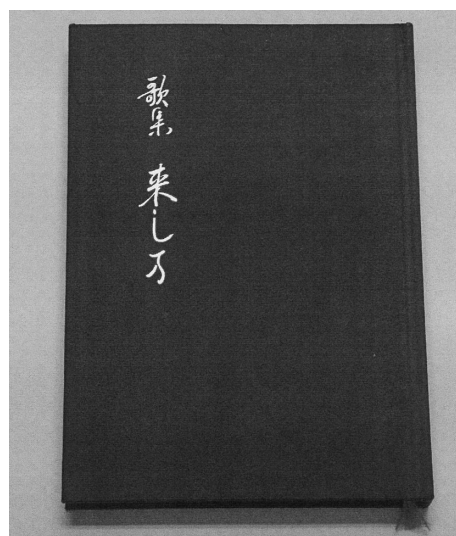 歌集 来し乃